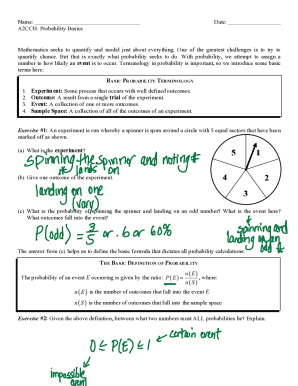 Name: ____________ Date: ____________
A2CCH: Probability Basics
Mathematics seeks to quantify and model just about everything. One of the greatest challenges is to try to
quantify chance. But that is exactly what probability seeks to do. With probability, we attempt to assign a
number to how likely an event is to occur. Terminology in probability is important, so we introduce some basic
terms here:
BASIC PROBABILITY TERMINOLOGY
1. Experiment: Some process that occurs with well defined outcomes.
2. Outcome: A result from a single trial of the experiment.
3. Event: A collection of one or more outcomes.
4. Sample Space: A collection of all of the outcomes of an experiment.
Exercise #1: An experiment is run whereby a spinner is spun around a circle with 5 equal sectors that have been
marked off as shown.
(a) What is the experiment?
spinning the spinner and noting #
it lands on
5 1
4 2
3
(b) Give one outcome of the experiment.
landing on one
(vary)
(c) What is the probability of spinning the spinner and landing on an odd number? What is the event here?
What outcomes fall into the event?
P(odd) = 3/5 or .6 or 60%
spinning and
landing on an
odd #
The answer from (c) helps us to define the basic formula that dictates all probability calculations.
THE BASIC DEFINITION OF PROBABILITY
The probability of an event E occurring is given by the ratio: P(E) = n(E)/n(S), where:
n(E) is the number of outcomes that fall into the event E
n(S) is the number of outcomes that fall into the sample space
Exercise #2: Given the above definition, between what two numbers must ALL probabilities lie? Explain.
0 ≤ P(E) ≤ 1
certain event
impossible
event